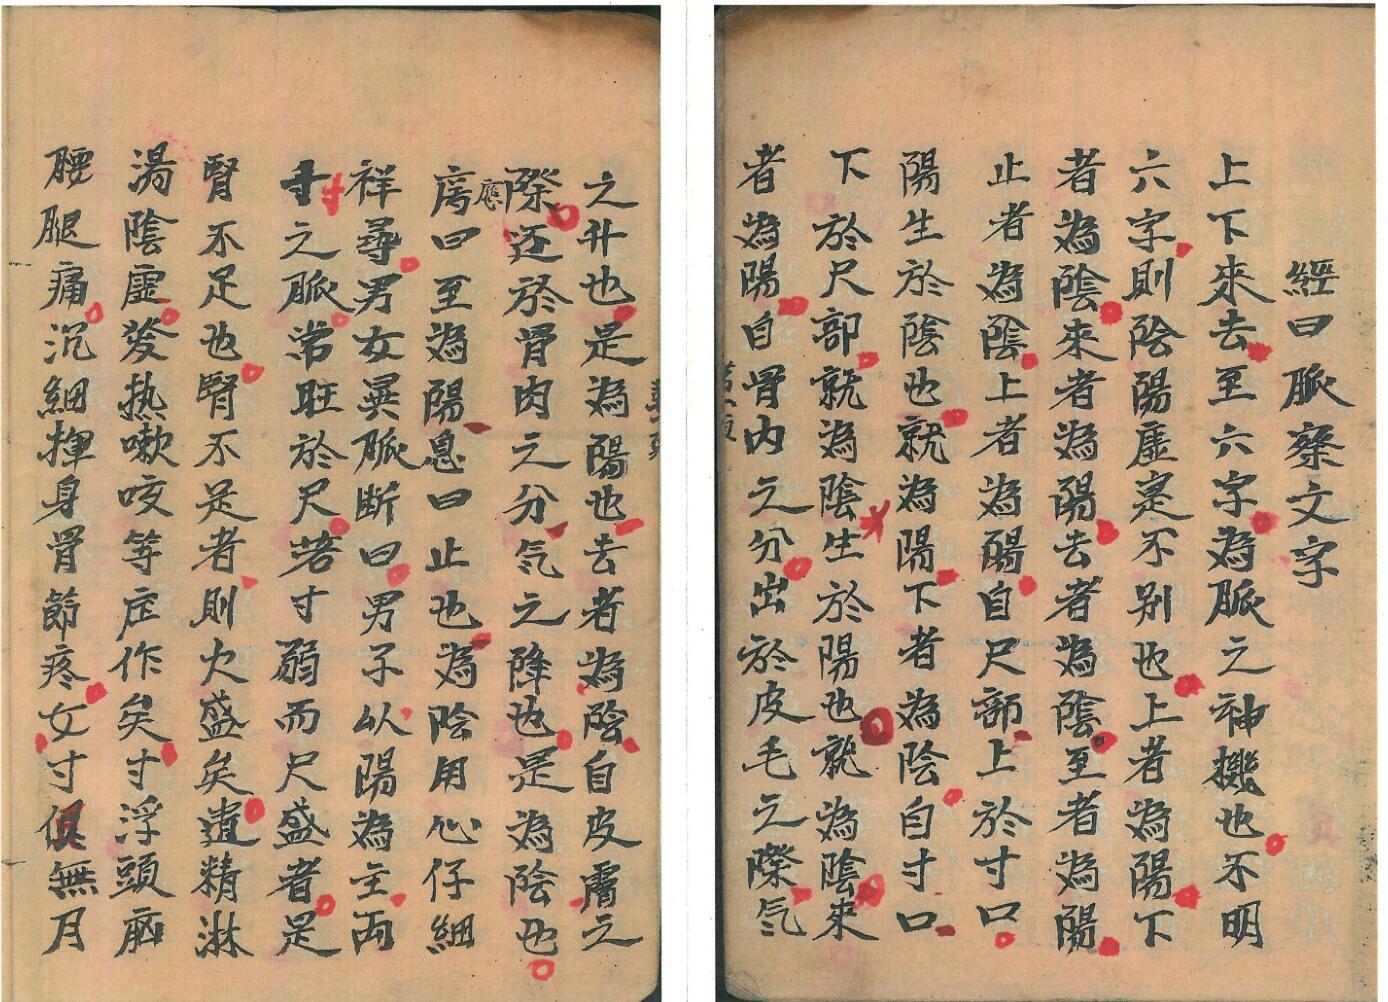 經曰脈察文字
上下來去至六字為脈之神機也不明
六字則陰陽虛裏不别也上者為陽下
者為陰來者為陽去者為陰至者為陽
止者為陰上者為陽自尺部上於寸口
陽生於陰也就為陽下者為陰自寸口
下於尺部就為陰生於陽也就為陰來
者為陽自骨内之分出於皮毛之隙气
之升也是為陽也去者為陰自皮膚之
隙还於骨肉之分气之降也是為陰也
應曰至為陽息曰止也為陰用心仔細
祥尋男女異脈断曰男子以陽為主両
寸之脈常旺於尺若寸弱而尺盛者是
腎不足也腎不足者則火盛矣遺精淋
湯陰虛発热嗽咳等症作矣寸浮頭痛
腰腿痛沉細揮身骨節疼女寸俱無月